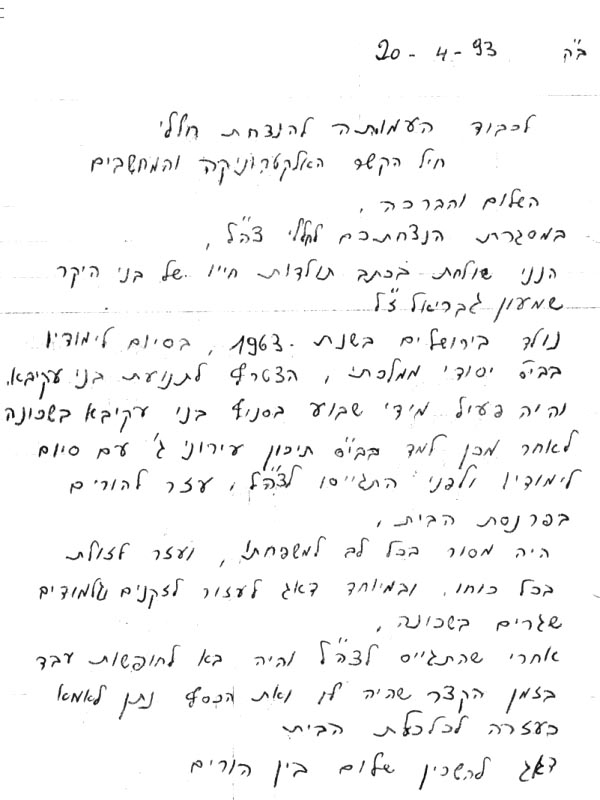 ב"ה 20-4-93
לכבוד העמותה להנצחת חללי
חיל הקשר האלקטרוניקה והמחשבים
השלום והברכה,
במסגרת הנצחתכם לחללי צה"ל,
הנני שולחת בכתב תולדות חייו של בני היקר
שמעון גבריאל ז"ל
נולד בירושלים בשנת 1963, בסיום לימודיו
בבי"ס יסודי ממלכתי, הצטרף לתנועת בני עקיבא.
והיה פעיל מידי שבוע בסניף בני עקיבא בשכונה
לאחר מכן למד בבי"ס תיכון עירוני ג' עם סיום
לימודיו ולפני התגייסו לצה"ל, עזר להורים
בפרנסת הבית,
היה מסור בכל לב למשפחתו, ועזר לזולת
בכל כוחו, ובמיוחד דאג לעזור לזקנים גלמודים
שגרים בשכונה,
אחרי שהתגייס לצה"ל והיה בא לחופשות עבד
בזמן הקצר שהיה לו ואת הכסף נתן לאמא
כעזרה לכלכלת הבית
דאג להשכין שלום בין הורים